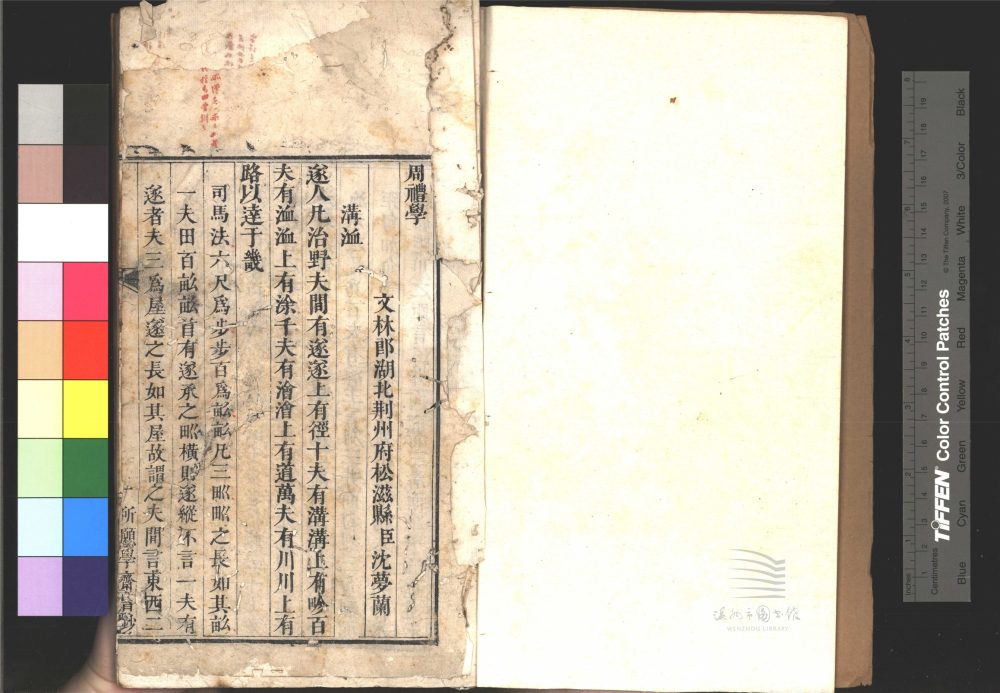 周禮學
文林郎湖北荆州府松滋縣臣沈夢蘭
溝洫
遂人凡治野夫間有遂遂上有徑十夫有溝溝上有畛百
夫有洫洫上有涂千夫有澮澮上有道萬夫有川川上有
路以達于畿
司馬法六尺爲步步百爲畝畝凡三甽甽之長如其畝
一夫田百畝畝首有遂承之甽橫則遂縱不言一夫有
遂者夫三爲屋遂之長如其屋故謂之夫間言東西二
所願學齋書鈔
温州市圖書館
WENZHOU LIBRARY
Inches
Centimetres
TIFFEN Color Control Patches
© The Tiffen Company, 2007
Blue
Cyan
Green
Yellow
Red
Magenta
White
3/Color
Black